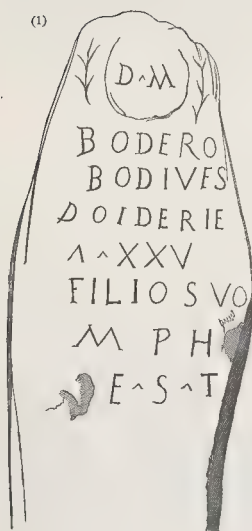 (1)
D^M
BODERO
BODIVES
DOIDERIE
Λ^XXV
FILIO SVO
M P H
E^S^T